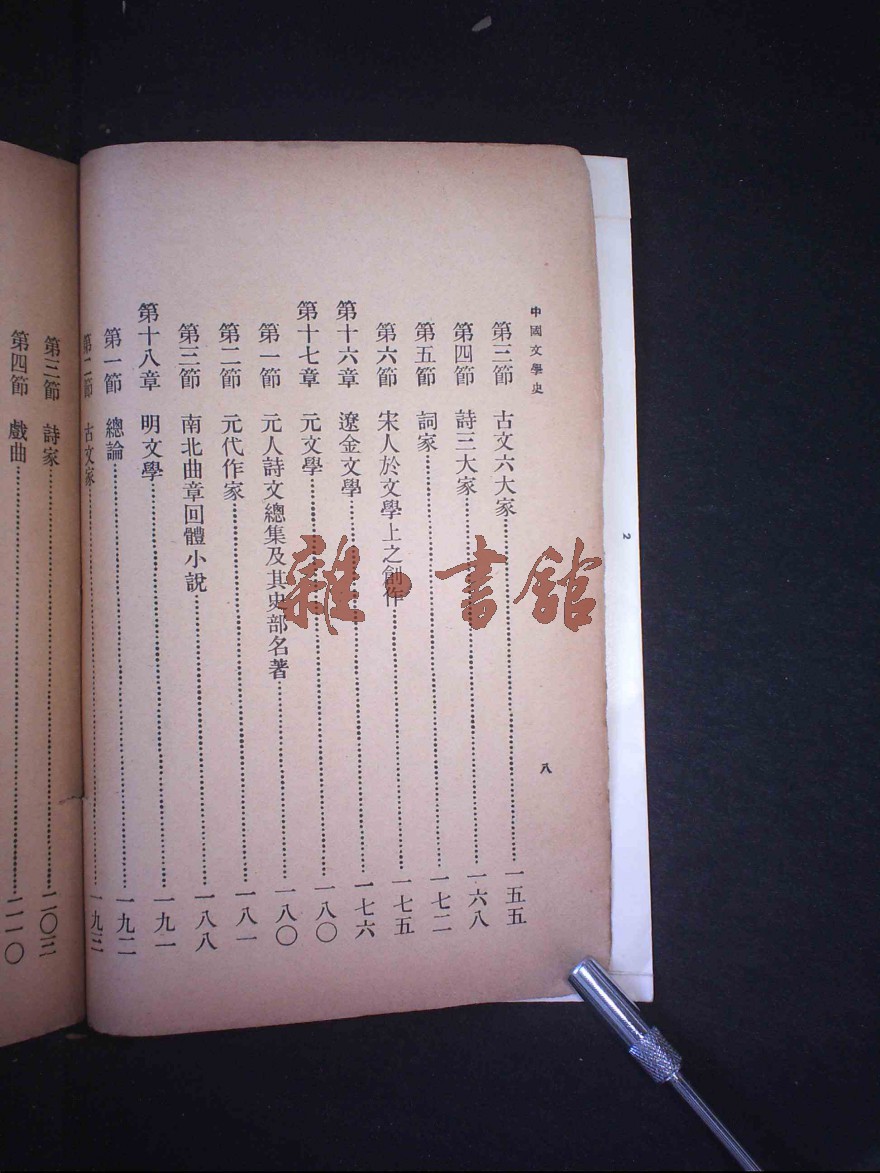 中國文學史
八
第三節 古文六大家 一五五
第四節 詩三大家 一六八
第五節 詞家 一七二
第六節 宋人於文學上之創作 一七五
第十六章 遼金文學 一七六
第十七章 元文學 一八〇
第一節 元人詩文總集及其史部名著 一八〇
第二節 元代作家 一八一
第三節 南北曲章回體小說 一八八
第十八章 明文學 一九一
第一節 總論 一九二
第二節 古文家 一九三
第三節 詩家 二〇三
第四節 戲曲 二一〇
2
雜·書館